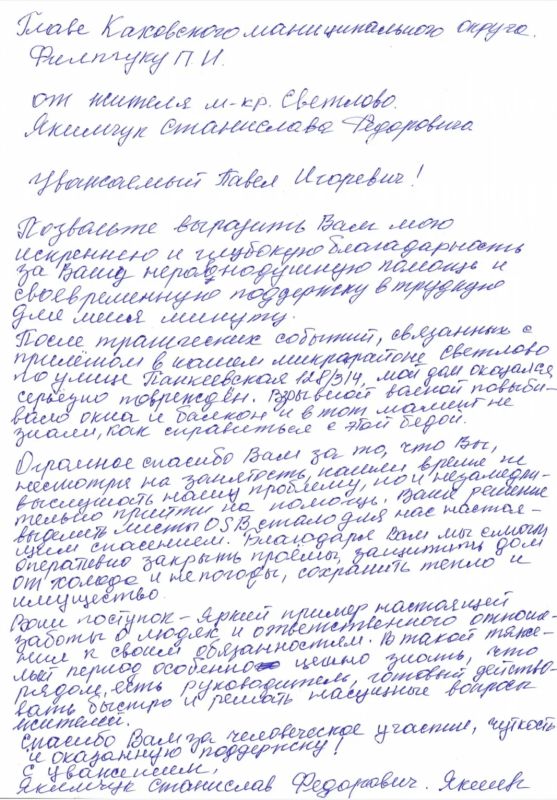 Главе Каховского маниципального округа.
Филипчуку П.И.
от жителя м-кр. Светлово.
Якимчук Станислава Федоровича
Уважаемый Павел Игоревич!
Позвольте выразить Вам мою
искреннюю и глубокую благадарность
за Вашу неравнодушную помощь и
своевременную поддержку в трудную
для меня минуту.
После трагических событий, связанных с
прилётом в нашем микрарайоне Светлово
по улице Панкеевская 128/3/4, мой дом оказался
серьезно поврежден. Взрывной валной повыби-
вало окна и балкон и в тот мамент не
знали, как справиться с этой бедой.
Огромное спасибо Вам за то, что Вы,
несмотря на занятость, нашли время не
выслушать нашу проблему, но и незамедли-
тельно прийти на помощь. Ваше решение
выделить листы OSB стало для нас настоя-
щим спасением. Благодаря Вам мы смогли
оперативно закрыть проёмы, защитить дом
от холода и непогоды, сохранить тепло и
имущество.
Ваш поступок - яркий пример настоящей
заботы о людях и ответственного отноше-
ния к своим обязанностям. В такой тяже-
лый период особенно ценно знать, что
рядом есть руководитель, готовый действо-
вать быстро и решать насущные вопросы
жителей.
Спасибо Вам за человеческое участие, чуткость
и оказанную поддержку!
С уважением,
Якимчук Станислав Федорович.